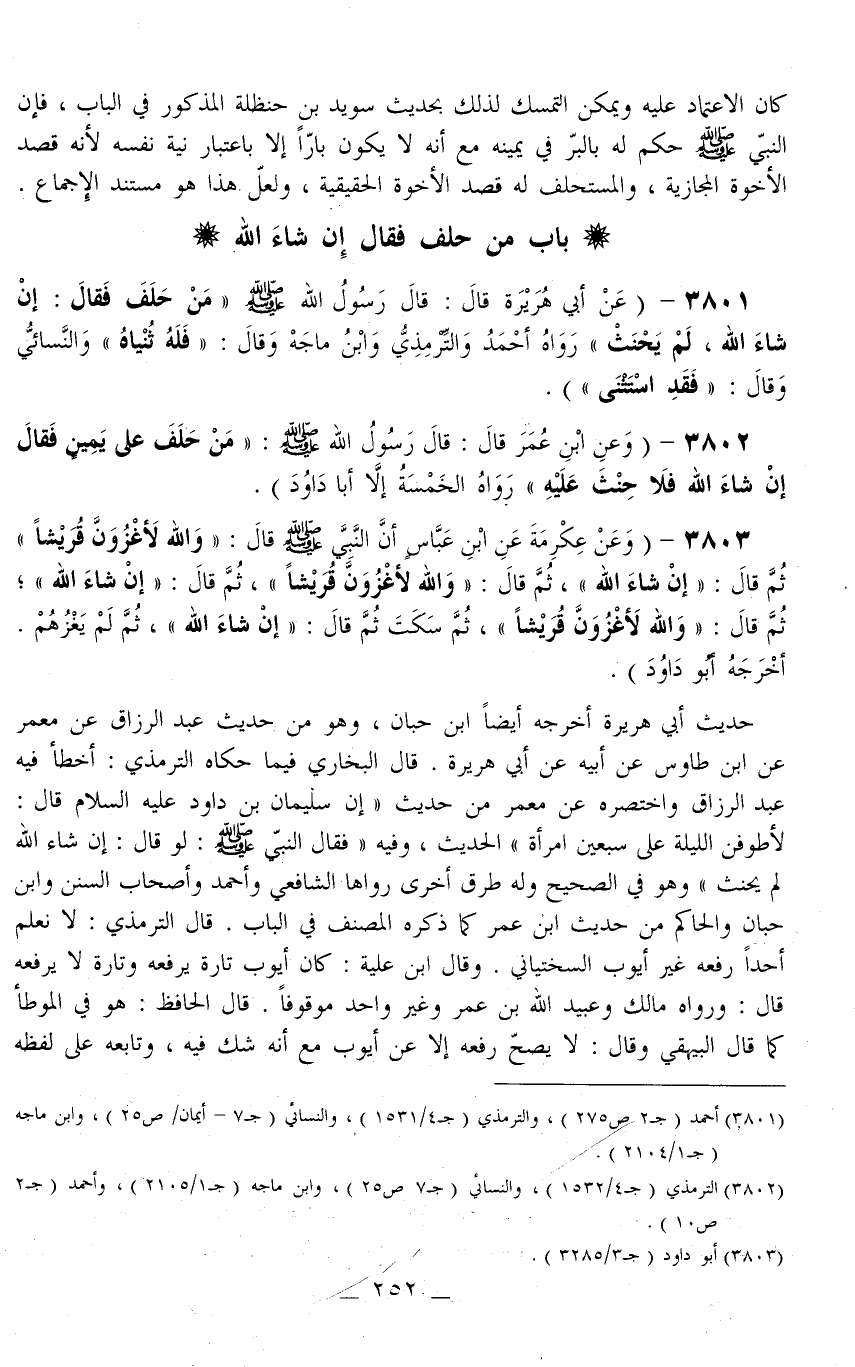 كان الاعتماد عليه ويمكن التمسك لذلك بحديث سويد بن حنظلة المذكور في الباب ، فإن
النبيّ ﷺ حكم له بالبرّ في يمينه مع أنه لا يكون بارّاً إلا باعتبار نية نفسه لأنه قصد
الأخوة المجازية ، والمستحلف له قصد الأخوة الحقيقية ، ولعلّ هذا هو مستند الإجماع .
❋ باب من حلف فقال إن شاءَ الله ❋
٣٨٠١ – ( عَنْ أبي هُرَيْرَة قالَ : قالَ رَسُولُ الله ﷺ « مَنْ حَلَفَ فَقالَ : إنْ
شاءَ الله ، لَمْ يَحْنَثْ » رَوَاهُ أحْمَدُ وَالتِّرْمِذِيُّ وَابْنُ ماجَهْ وَقالَ : « فَلَهُ ثُنْياهُ » وَالنَّسائيُّ
وَقالَ : « فَقَدِ اسْتَثْنَى » ) .
٣٨٠٢ – ( وَعنِ ابْنِ عُمَرَ قالَ : قالَ رَسُولُ الله ﷺ : « مَنْ حَلَفَ على يَمِينٍ فَقالَ
إنْ شاءَ الله فَلَا حِنْثَ عَلَيْهِ » رَوَاهُ الخَمْسَةُ إلَّا أبا دَاوُدَ ) .
٣٨٠٣ – ( وَعَنْ عِكْرِمَةَ عَنِ ابْنِ عَبَّاسٍ أنَّ النَّبِيَّ ﷺ قالَ : « وَالله لَأغْزُوَنَّ قُرَيْشاً »
ثُمَّ قالَ : « إنْ شاءَ الله » ، ثُمَّ قالَ : « وَالله لأغْزُوَنَّ قُرَيْشاً » ، ثُمَّ قالَ : « إنْ شاءَ الله » ؛
ثُمَّ قالَ : « وَالله لَأغْزُوَنَّ قُرَيْشاً » ، ثُمَّ سَكَتَ ثُمَّ قالَ : « إنْ شاءَ الله » ، ثُمَّ لَمْ يَغْزُهُمْ .
أخْرَجَهُ أبُو دَاوُدَ ) .
حديث أبي هريرة أخرجه أيضاً ابن حبان ، وهو من حديث عبد الرزاق عن معمر
عن ابن طاوس عن أبيه عن أبي هريرة . قال البخاري فيما حكاه الترمذي : أخطأ فيه
عبد الرزاق واختصره عن معمر من حديث « إن سليمان بن داود عليه السلام قال :
لأطوفن الليلة على سبعين امرأة » الحديث ، وفيه « فقال النبيّ ﷺ : لو قال : إن شاء الله
لم يحنث » وهو في الصحيح وله طرق أخرى رواها الشافعي وأحمد وأصحاب السنن وابن
حبان والحاكم من حديث ابن عمر كما ذكره المصنف في الباب . قال الترمذي : لا نعلم
أحداً رفعه غير أيوب السختياني . وقال ابن علية : كان أيوب تارة يرفعه وتارة لا يرفعه
قال : ورواه مالك وعبيد الله بن عمر وغير واحد موقوفاً . قال الحافظ : هو في الموطأ
كما قال البيهقي وقال : لا يصحّ رفعه إلا عن أيوب مع أنه شك فيه ، وتابعه على لفظه
(٣٨٠١) أحمد ( جـ٢ ص٢٧٥ ) ، والترمذي ( جـ٤/١٥٣١ ) ، والنسائي ( جـ٧ – أيمان/ ص٢٥ ) ، وابن ماجه
( جـ١/٢١٠٤ ) .
(٣٨٠٢) الترمذي ( جـ٤/١٥٣٢ ) ، والنسائي ( جـ٧ ص٢٥ ) ، وابن ماجه ( جـ١/٢١٠٥ ) ، وأحمد ( جـ٢
ص١٠ ) .
(٣٨٠٣) أبو داود ( جـ٣/٣٢٨٥ ) .
_ ٢٥٢ _